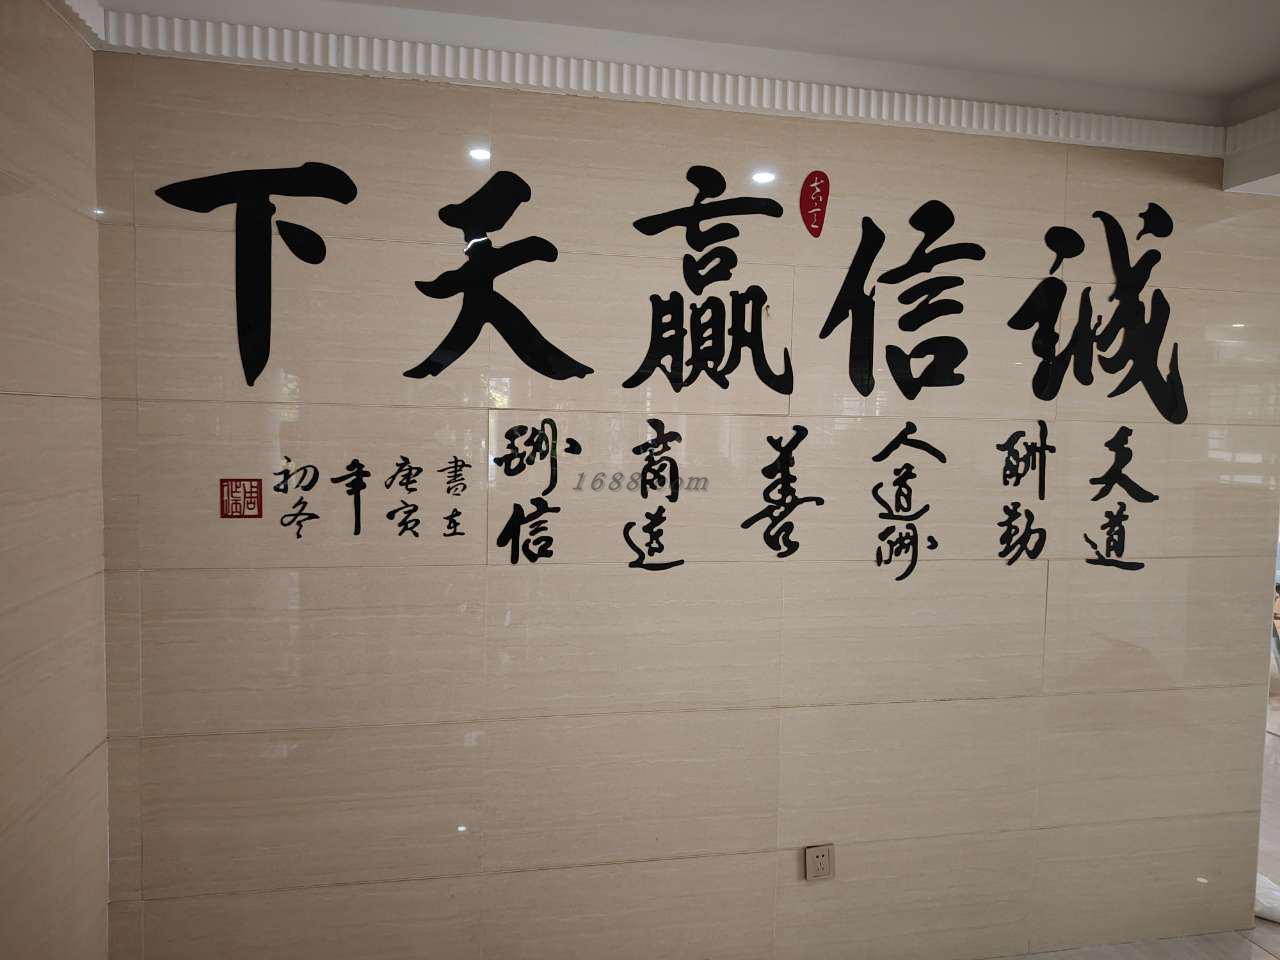 誠信贏天下
天道
酬勤
人道酬
善
商道
酬信
書在
庚寅
年
初冬
1688.com